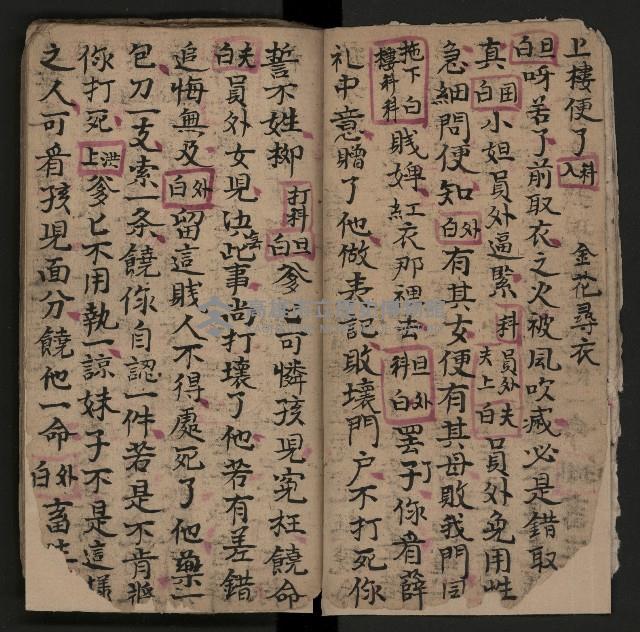 上樓便了 入科 金花尋衣
旦白 呀若了前取衣之火被風吹滅必是錯取
真 白 小姐員外逼緊 科 員外夫上 夫白 員外免用性
急細問便知 外白 有其女便有其母敗我門
拖下樓科 白科 賤婢紅衣那裡去 旦科 外白 罷了你看薛
礼中意贈了他做表記敗壞門户不打死你
誓不姓柳 打科 旦白 爹匕可憐孩兒冤枉饒命
夫白 員外女兒決無此事尚打壞了他若有差錯
追悔無及 外白 留這賤人不得處死了他藥一
包刀一支索一条饒你自認一件若是不肯
你打死 洪上 爹匕不用執一諒妹子不是這樣
之人可看孩兒面分饒他一命 外白 畜